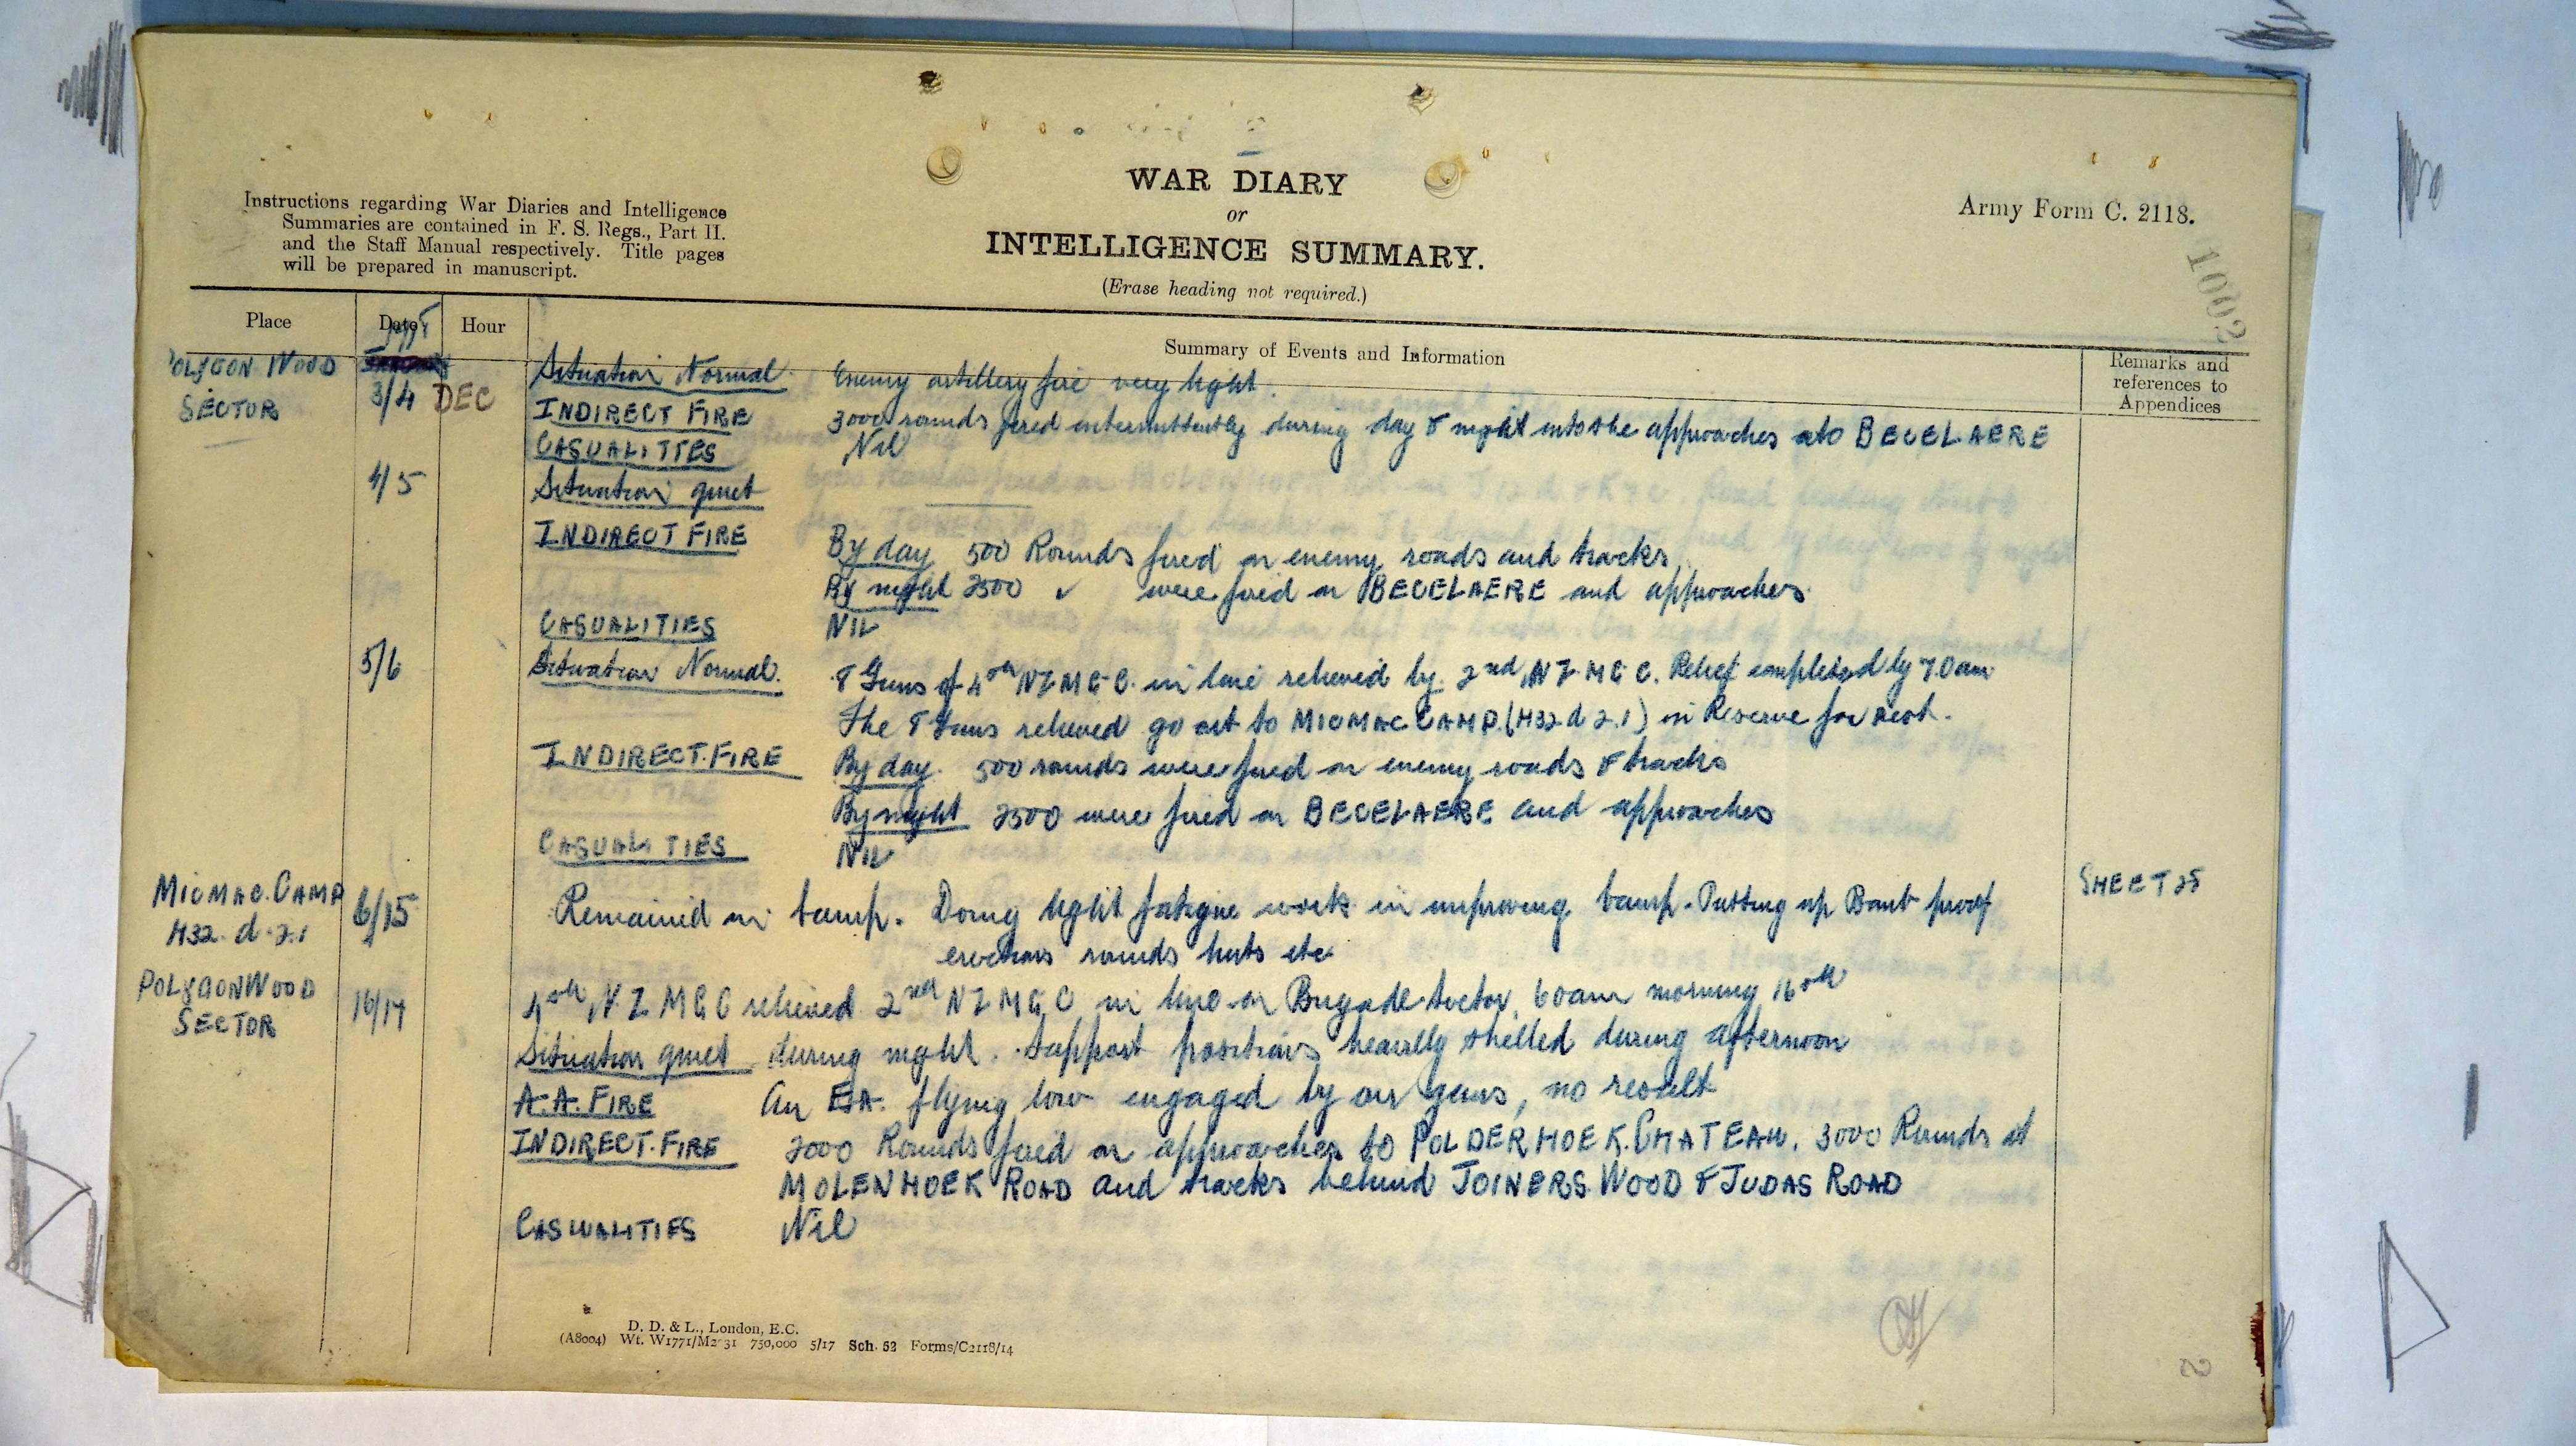 WAR DIARY
or
INTELLIGENCE SUMMARY.
(Erase heading not required.)
Instructions regarding War Diaries and Intelligence
Summaries are contained in F. S. Regs., Part II.
and the Staff Manual respectively. Title pages
will be prepared in manuscript.
Army Form C. 2118.
1002
Place Date Hour Summary of Events and Information Remarks and
references to
Appendices
POLYGON WOOD
SECTOR
3/4 DEC Situation Normal. Enemy artillery fire very light.
INDIRECT FIRE 3000 rounds fired intermittently during day & night into the approaches to BECELAERE
CASUALITIES Nil
4/5 Situation quiet
INDIRECT FIRE By day 500 Rounds fired on enemy roads and tracks
By night 2500 " were fired on BECELAERE and approaches.
CASUALITIES NIL
5/6 Situation Normal. 8 Guns of 4th NZMGC. in line relieved by 2nd NZMGC. Relief completed by 7.0am
The 8 Guns relieved go out to MICMAC CAMP (H32 d 2.1) in Reserve for rest.
INDIRECT. FIRE By day. 500 rounds were fired on enemy roads & tracks
By night 2500 were fired on BECELAERE and approaches
CASUALITIES NIL
MICMAC. CAMP
H32. d. 2.1
6/15 Remained in Camp. Doing light fatigue work in improving Camp. Putting up Bomb proof
erections rounds huts etc
SHEET 28
POLYGON WOOD
SECTOR
16/17 4th N.Z MGC relieved 2nd NZMGC in line on Brigade Sector, 6.0am morning 16th
Situation quiet during night. Support positions heavily shelled during afternoon
A.A. FIRE An E.A. flying low engaged by our guns, no result
INDIRECT. FIRE 2000 Rounds fired on approaches to POLDERHOEK. CHATEAU. 3000 Rounds at
MOLENHOEK ROAD and tracks behind JOINERS WOOD & JUDAS ROAD
CASUALITIES Nil
D. D. & L., London, E.C.
(A8004) Wt. W1771/M2 31 750,000 5/17 Sch. 52 Forms/C2118/14
2